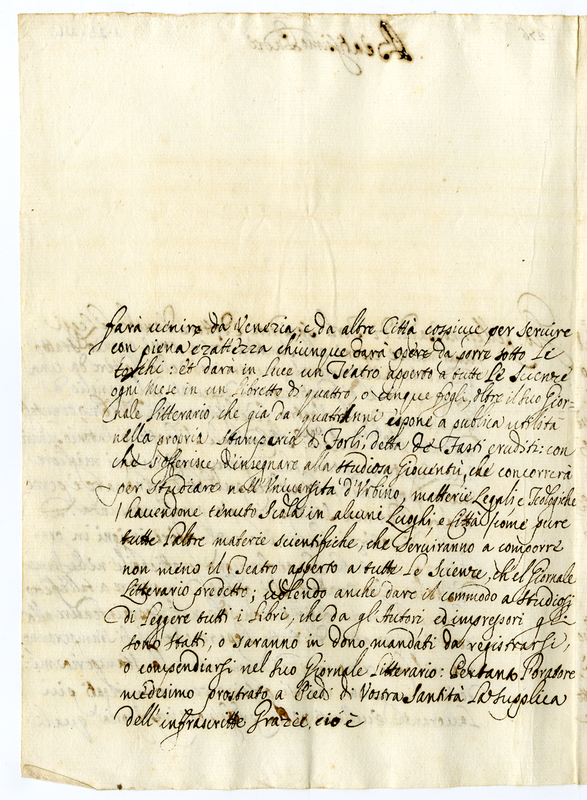 farà venire da Venezia: e da altre Città cospicue per servire
con piena ezatezza chiunque darà opere da porre sotto Le
torchi: et darà in Luce un Teatro apperto a tutte Le Scienze
ogni Mese in un libretto di quattro, o cinque fogli, oltre il suo Gior-
nale Litterario che già da quatr'anni espone a publica utilità
nella propria Stamparia di Forlì, detta de Fasti eruditi: con
che s'offerisce d'insegnare alla studiosa Gioventù, che concorrerà
per studiare nell'Università d'Urbino, matterie Legali, e Teologiche
/ havendone tenuto Scola in alcuni Luoghi, e Città / come pure
tutte l'altre materie scientifiche, che serviranno a comporre
non meno il Teatro apperto a tutte Le Scienze, ch'el Giornale
Litterario predetto; volendo anche dare il commodo a studiosi
di Leggere tutti i Libri, che da gl'Autori ed impressori gli
sono statti, o saranno in dono mandati da registrarsi,
o compendiarsi nel suo Giornale Litterario: Pertanto l'oratore
medesimo prostrato a Piedi di Vostra Santità La supplica
dell'infrascritte Grazie, cioè